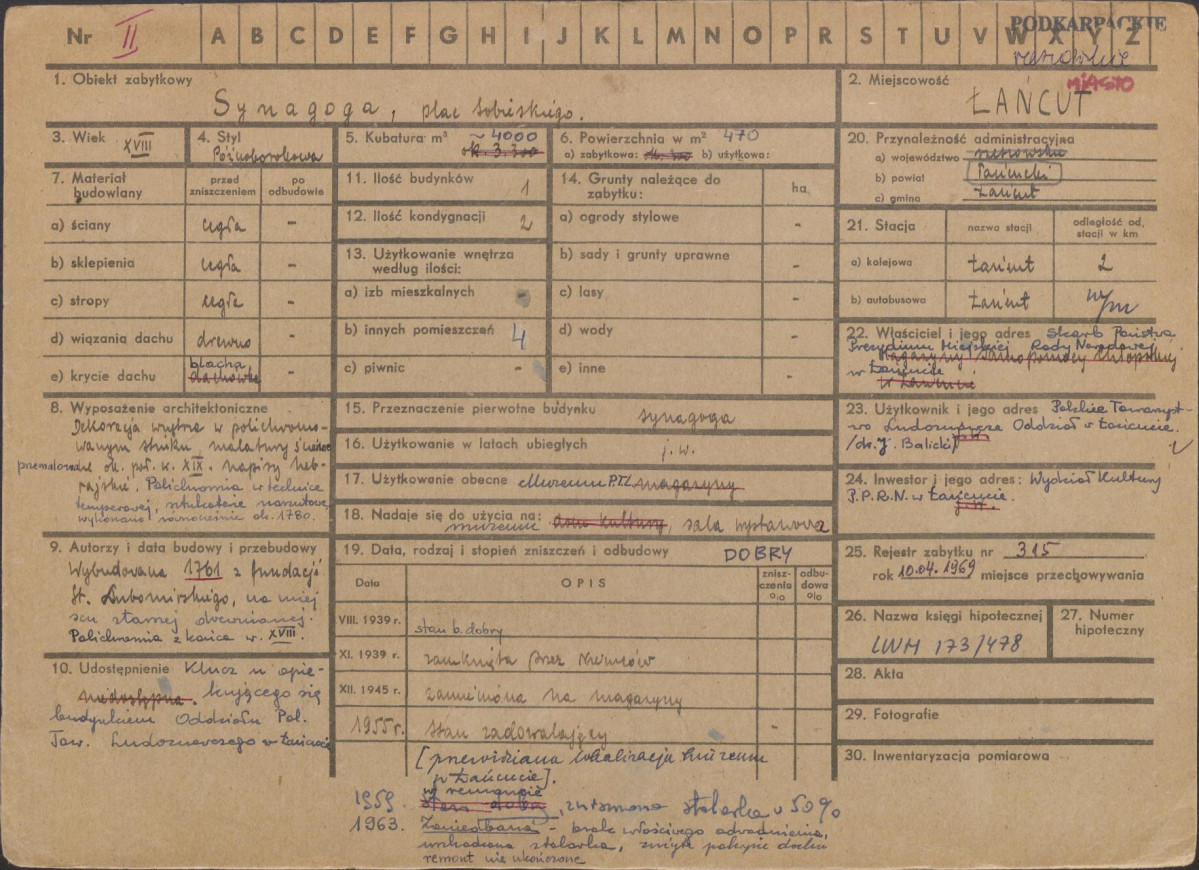 Nr II A B C D E F G H I J K L M N O P R S T U V W X Y Z
PODKARPACKIE
rzeszowskie
1. Obiekt zabytkowy
Synagoga, plac Sobieskiego.
2. Miejscowość
MIASTO
ŁAŃCUT
3. Wiek XVIII
4. Styl
Późnobarokowa
5. Kubatura m³ ~4000
ok. 3.300
6. Powierzchnia w m² 470
a) zabytkowa: b) użytkowa:
7. Materiał budowlany
przed zniszczeniem
po odbudowie
a) ściany cegła -
b) sklepienia cegła -
c) stropy cegła -
d) wiązania dachu drewno -
blacha
e) krycie dachu dachówka -
8. Wyposażenie architektoniczne
Dekoracja wnętrza w polichromo-
wanym stiuku, malatury ścienne
przemalowane ok. poł. w. XIX. napisy heb-
rajskie. Polichromia w technice
temperowej, sztukaterie narzutowe,
wykonano równocześnie ok. 1780.
9. Autorzy i data budowy i przebudowy
Wybudowana 1761 z fundacji
St. Lubomirskiego, na miej
scu starej drewnianej.
Polichromia z końca w. XVIII.
10. Udostępnienie Klucz u opie-
niedostępna. kującego się
budynkiem Oddziału Pol.
Tow. Ludoznawczego w Łańcucie
11. Ilość budynków 1
12. Ilość kondygnacji 2
13. Użytkowanie wnętrza
według ilości:
a) izb mieszkalnych -
b) innych pomieszczeń 4
c) piwnic -
14. Grunty należące do
zabytku: ha
a) ogrody stylowe -
b) sady i grunty uprawne -
c) lasy -
d) wody -
e) inne -
15. Przeznaczenie pierwotne budynku synagoga
16. Użytkowanie w latach ubiegłych j.w.
17. Użytkowanie obecne Muzeum PTL magazyny
18. Nadaje się do użycia na: dom kultury, sala wystawowa
muzeum
19. Data, rodzaj i stopień zniszczeń i odbudowy DOBRY
Data OPIS zniszczenia % odbudowa %
VIII. 1939 r. stan b. dobry
XI. 1939 r. zamknięta przez Niemców
XII. 1945 r. zamieniona na magazyny
1955 r. stan zadowalający -
[przewidziana lokalizacja muzeum
w Łańcucie].
w remoncie
1959. stan dobry, zniszczona stolarka w 50%
1963. Zaniedbana - brak właściwego odwodnienia,
uszkodzona stolarka, zużyte pokrycie dachu
remont nie ukończone
20. Przynależność administracyjna
a) województwo rzeszowskie
b) powiat Łańcucki
c) gmina Łańcut
21. Stacja
nazwa stacji
odległość od stacji w km
a) kolejowa Łańcut 2
b) autobusowa Łańcut w/m
22. Właściciel i jego adres Skarb Państwa
Prezydium Miejskiej Rady Narodowej
Magazyny Samopomocy Chłopskiej
w Łańcucie
w Łańcucie
23. Użytkownik i jego adres Polskie Towarzyst-
wo Ludoznawcze Oddział w Łańcucie.
/dr. J. Balicki/
24. Inwestor i jego adres: Wydział Kultury
P.P.R.N. w Łańcucie.
25. Rejestr zabytku nr 315
rok 10.04.1969 miejsce przechowywania
26. Nazwa księgi hipotecznej
LWH 173/478
27. Numer
hipoteczny
28. Akta
29. Fotografie
30. Inwentaryzacja pomiarowa